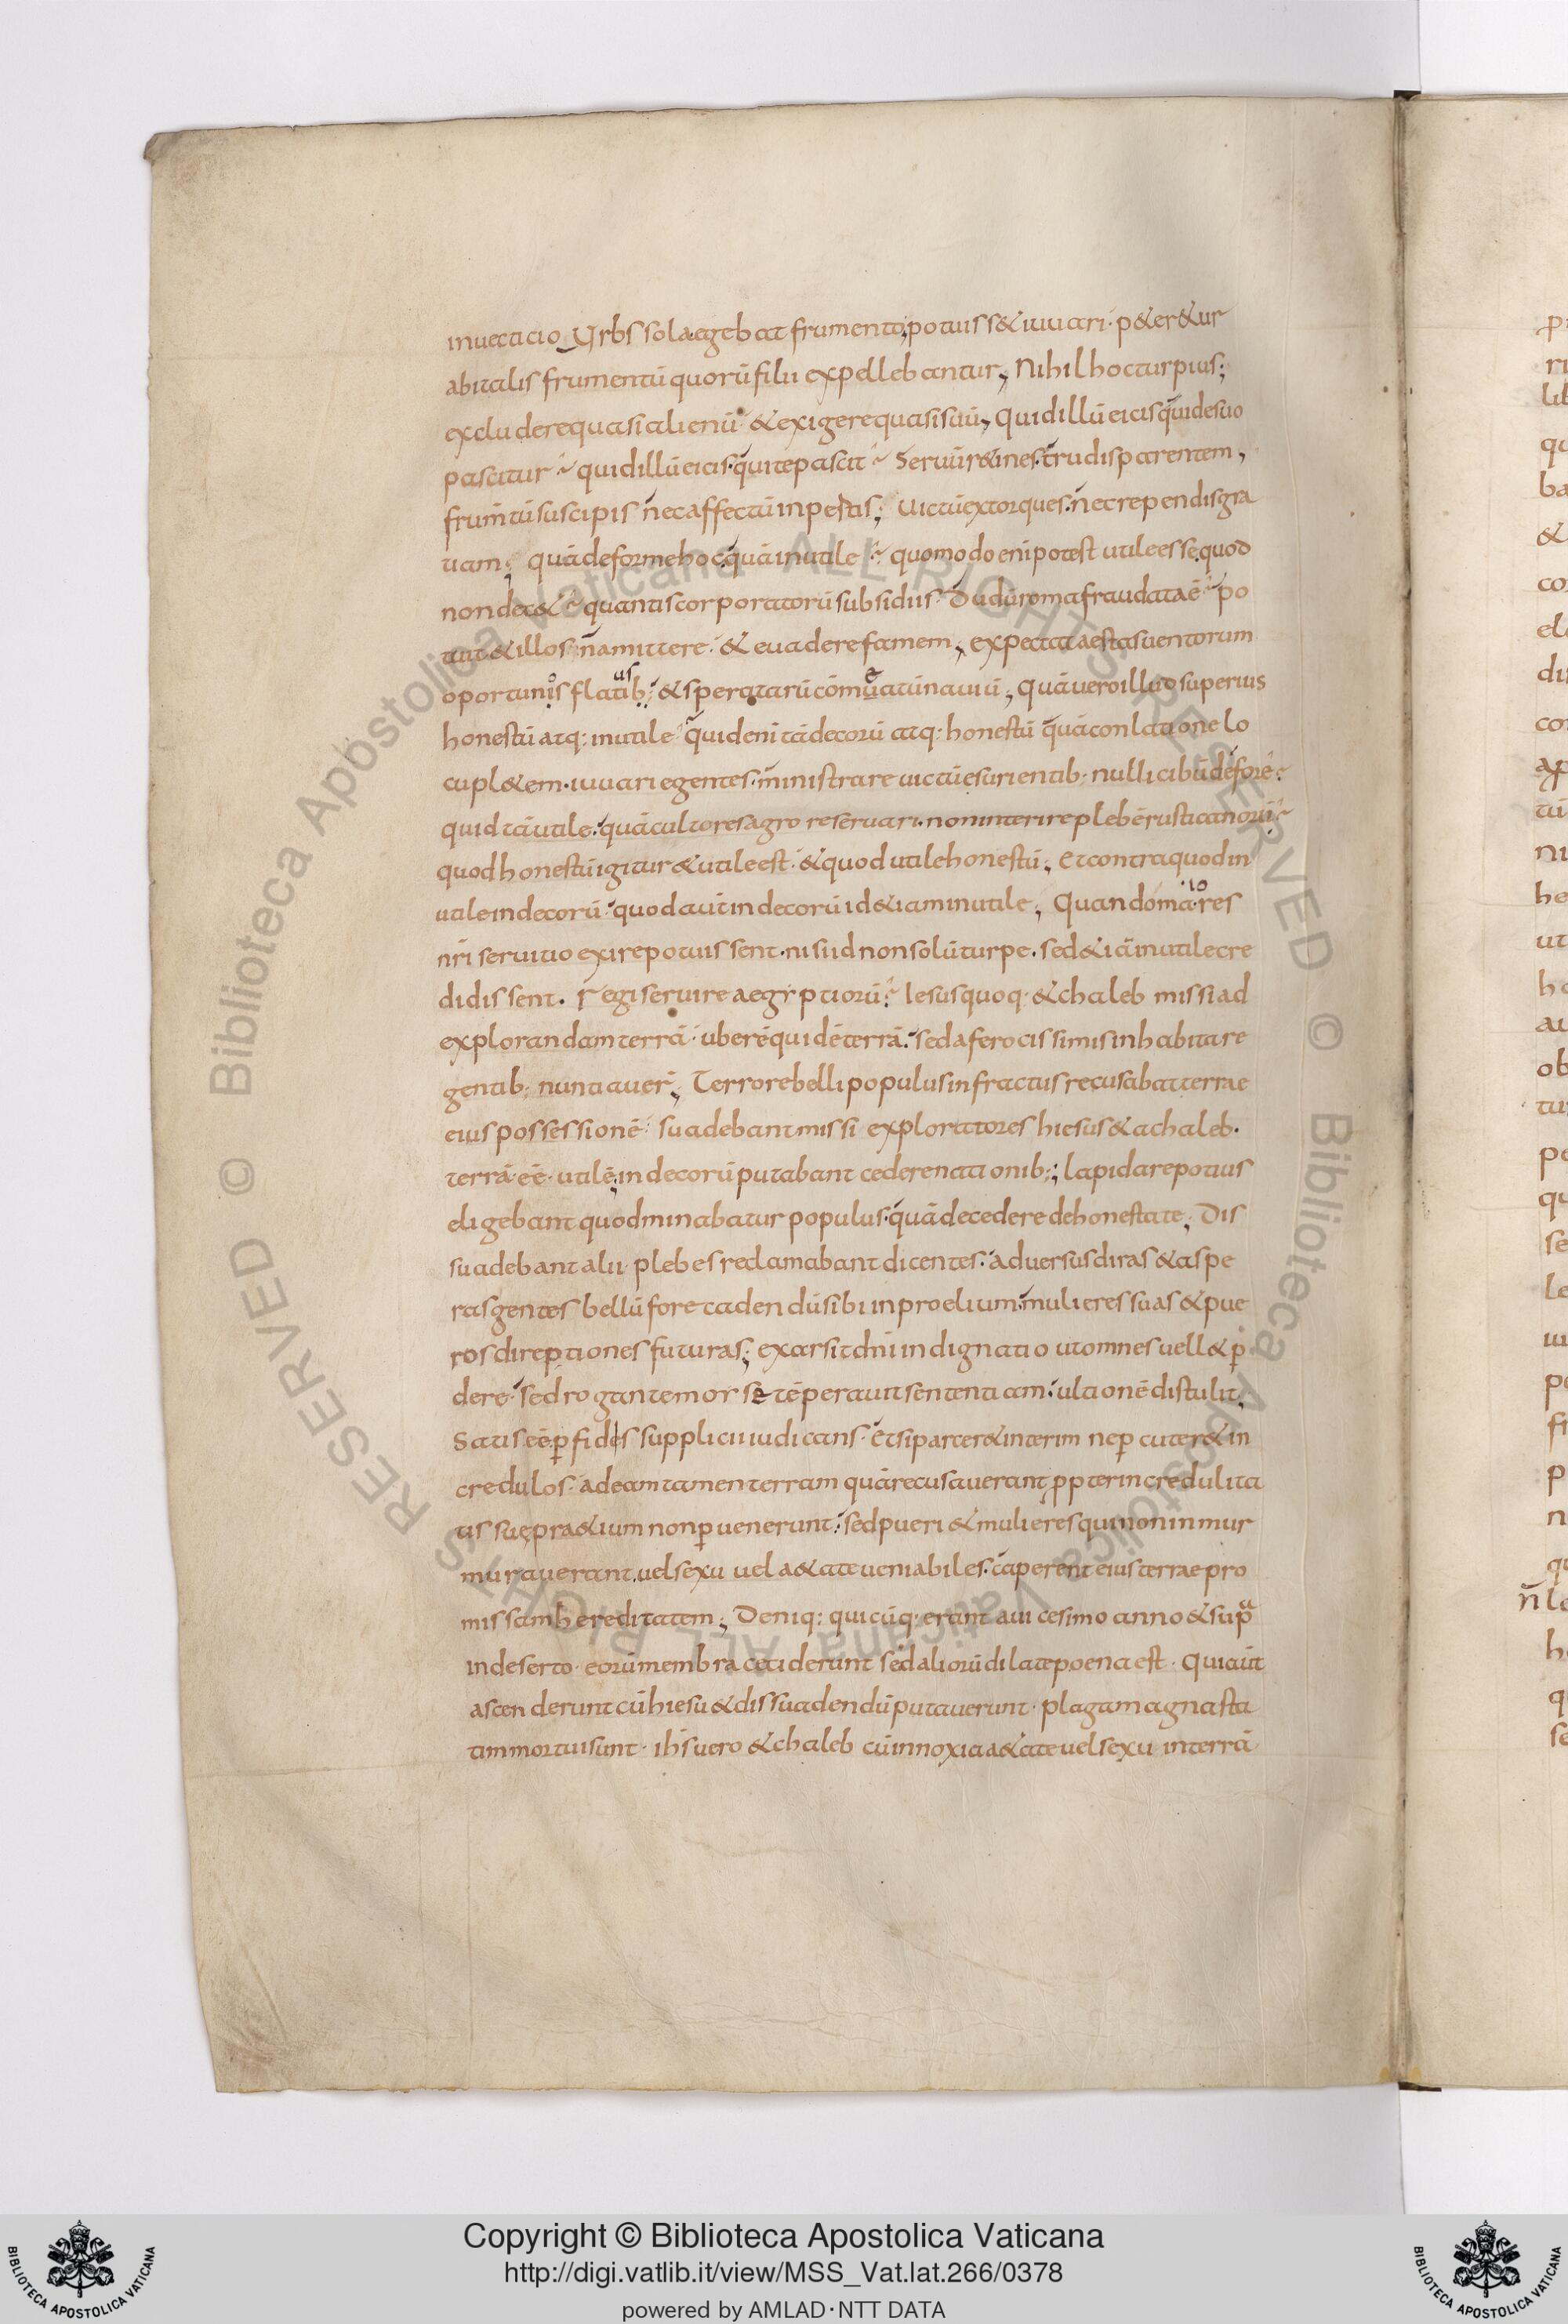 inuecticio Urbs sola egebat frumento; potuiss& iuuari· p&er&ur
ab italis frumentū quorū filii expellebantur; Nihil hoc turpius;
excludere quasi alienū· & exigere quasi suū; Quid illū eicis qui de suo
pascitur· quid illū eicis· qui te pascit· Seruū r&ines· trudis parentem,
frum̄tū suscipis nec affectū inpertis; Uictū extorques· nec rependis gra
tiam; quā deforme hoc· quā inutile· quomodo eni potest utile esse· quod
non dec&· quantis corporatorū subsidiis· Dudū roma fraudata ē· po
tuit & illos n̄ amittere· & euadere famem; expectata aestas uentorum
oportunis flatib; & speratarū cōmeatū nauiū; Quā uero illud superius
honestū atq: inutile· quid eni tā decorū atq: honestū quā conlatione lo
cupl&em· iuuari egentes· ministrare uictū esurientib; nulli cibū defore·
quid tā utile· quā cultores agro reseruari· non interire plebē rusticanorū·
quod honestū igitur & utile est· & quod utile honestū; Et contra quod in
utile indecorū· quod aut̄ indecorū id &iam inutile; Quando maiores
nr̄i seruitio exire potuissent· nisi id non solū turpe· sed &iā inutile cre
didissent· regi seruire aegyptiorū· Iesus quoq· & chaleb missi ad
explorandam terrā· uberē quidē terrā· sed a ferocissimis inhabitare
gentib; nuntiauer̄; Terrore belli populus infractus recusabat terrae
eius possessionē· suadebant missi exploratores hiesus & achaleb·
terrā eē· utilē; indecorū putabant cedere nationib;; lapidare potius
eligebant quod minabatur populus· quā decedere de honestate; Dis
suadebant alii· plebes reclamabant dicentes· aduersus diras & aspe
ras gentes bellū fore cadendū sibi in proelium· mulieres suas & pue
ros direptiones futuras; exarsit dn̄i indignatio ut omnes uell& p̱
dere· sed rogante morse tēperauit sententiam· ultionē distulit;
Satis eē p̱fides supplicii iudicans· Etsi parcer& interim nep̱ cuter& in
credulos· ad eam tamen terram quā recusauerant ppter incredulita
tis suę pra&ium non p̱uenerunt· sed pueri & mulieres qui non inmur
murauerant· uel sexu uel a&ate ueniabiles· caperent eius terrae pro
missam hereditatem; Deniq: quicūq· erant a uicesimo anno & supᵃ
in deserto· eorū membra ceciderunt sed aliorū dilate poena est· Qui aut̄
ascenderunt cū hiesu & dissuadendū putauerunt· plaga magna sta
tim mortui sunt· ih̄s uero & chaleb cū innoxia a&ate uel sexu in terrā
Copyright © Biblioteca Apostolica Vaticana
http://digi.vatlib.it/view/MSS_Vat.lat.266/0378
powered by AMLAD·NTT DATA